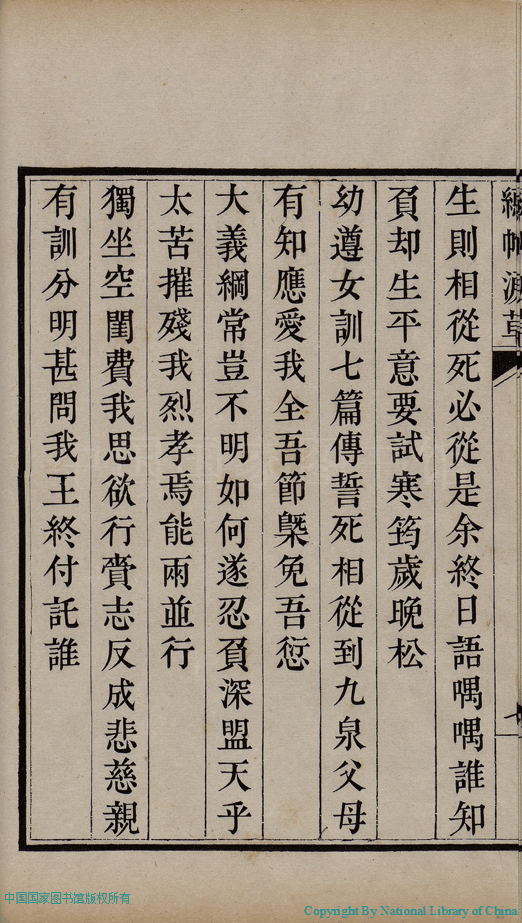 生則相從死必從是余終日語喁喁誰知
負却生平意要試寒筠歲晚松
幼遵女訓七篇傳誓死相從到九泉父母
有知應愛我全吾節槩免吾愆
大義綱常豈不明如何遂忍負深盟天乎
太苦摧殘我烈孝焉能兩並行
獨坐空閨費我思欲行賫志反成悲慈親
有訓分明甚問我王終付託誰
中国国家图书馆版权所有
Copyright By National Library of China